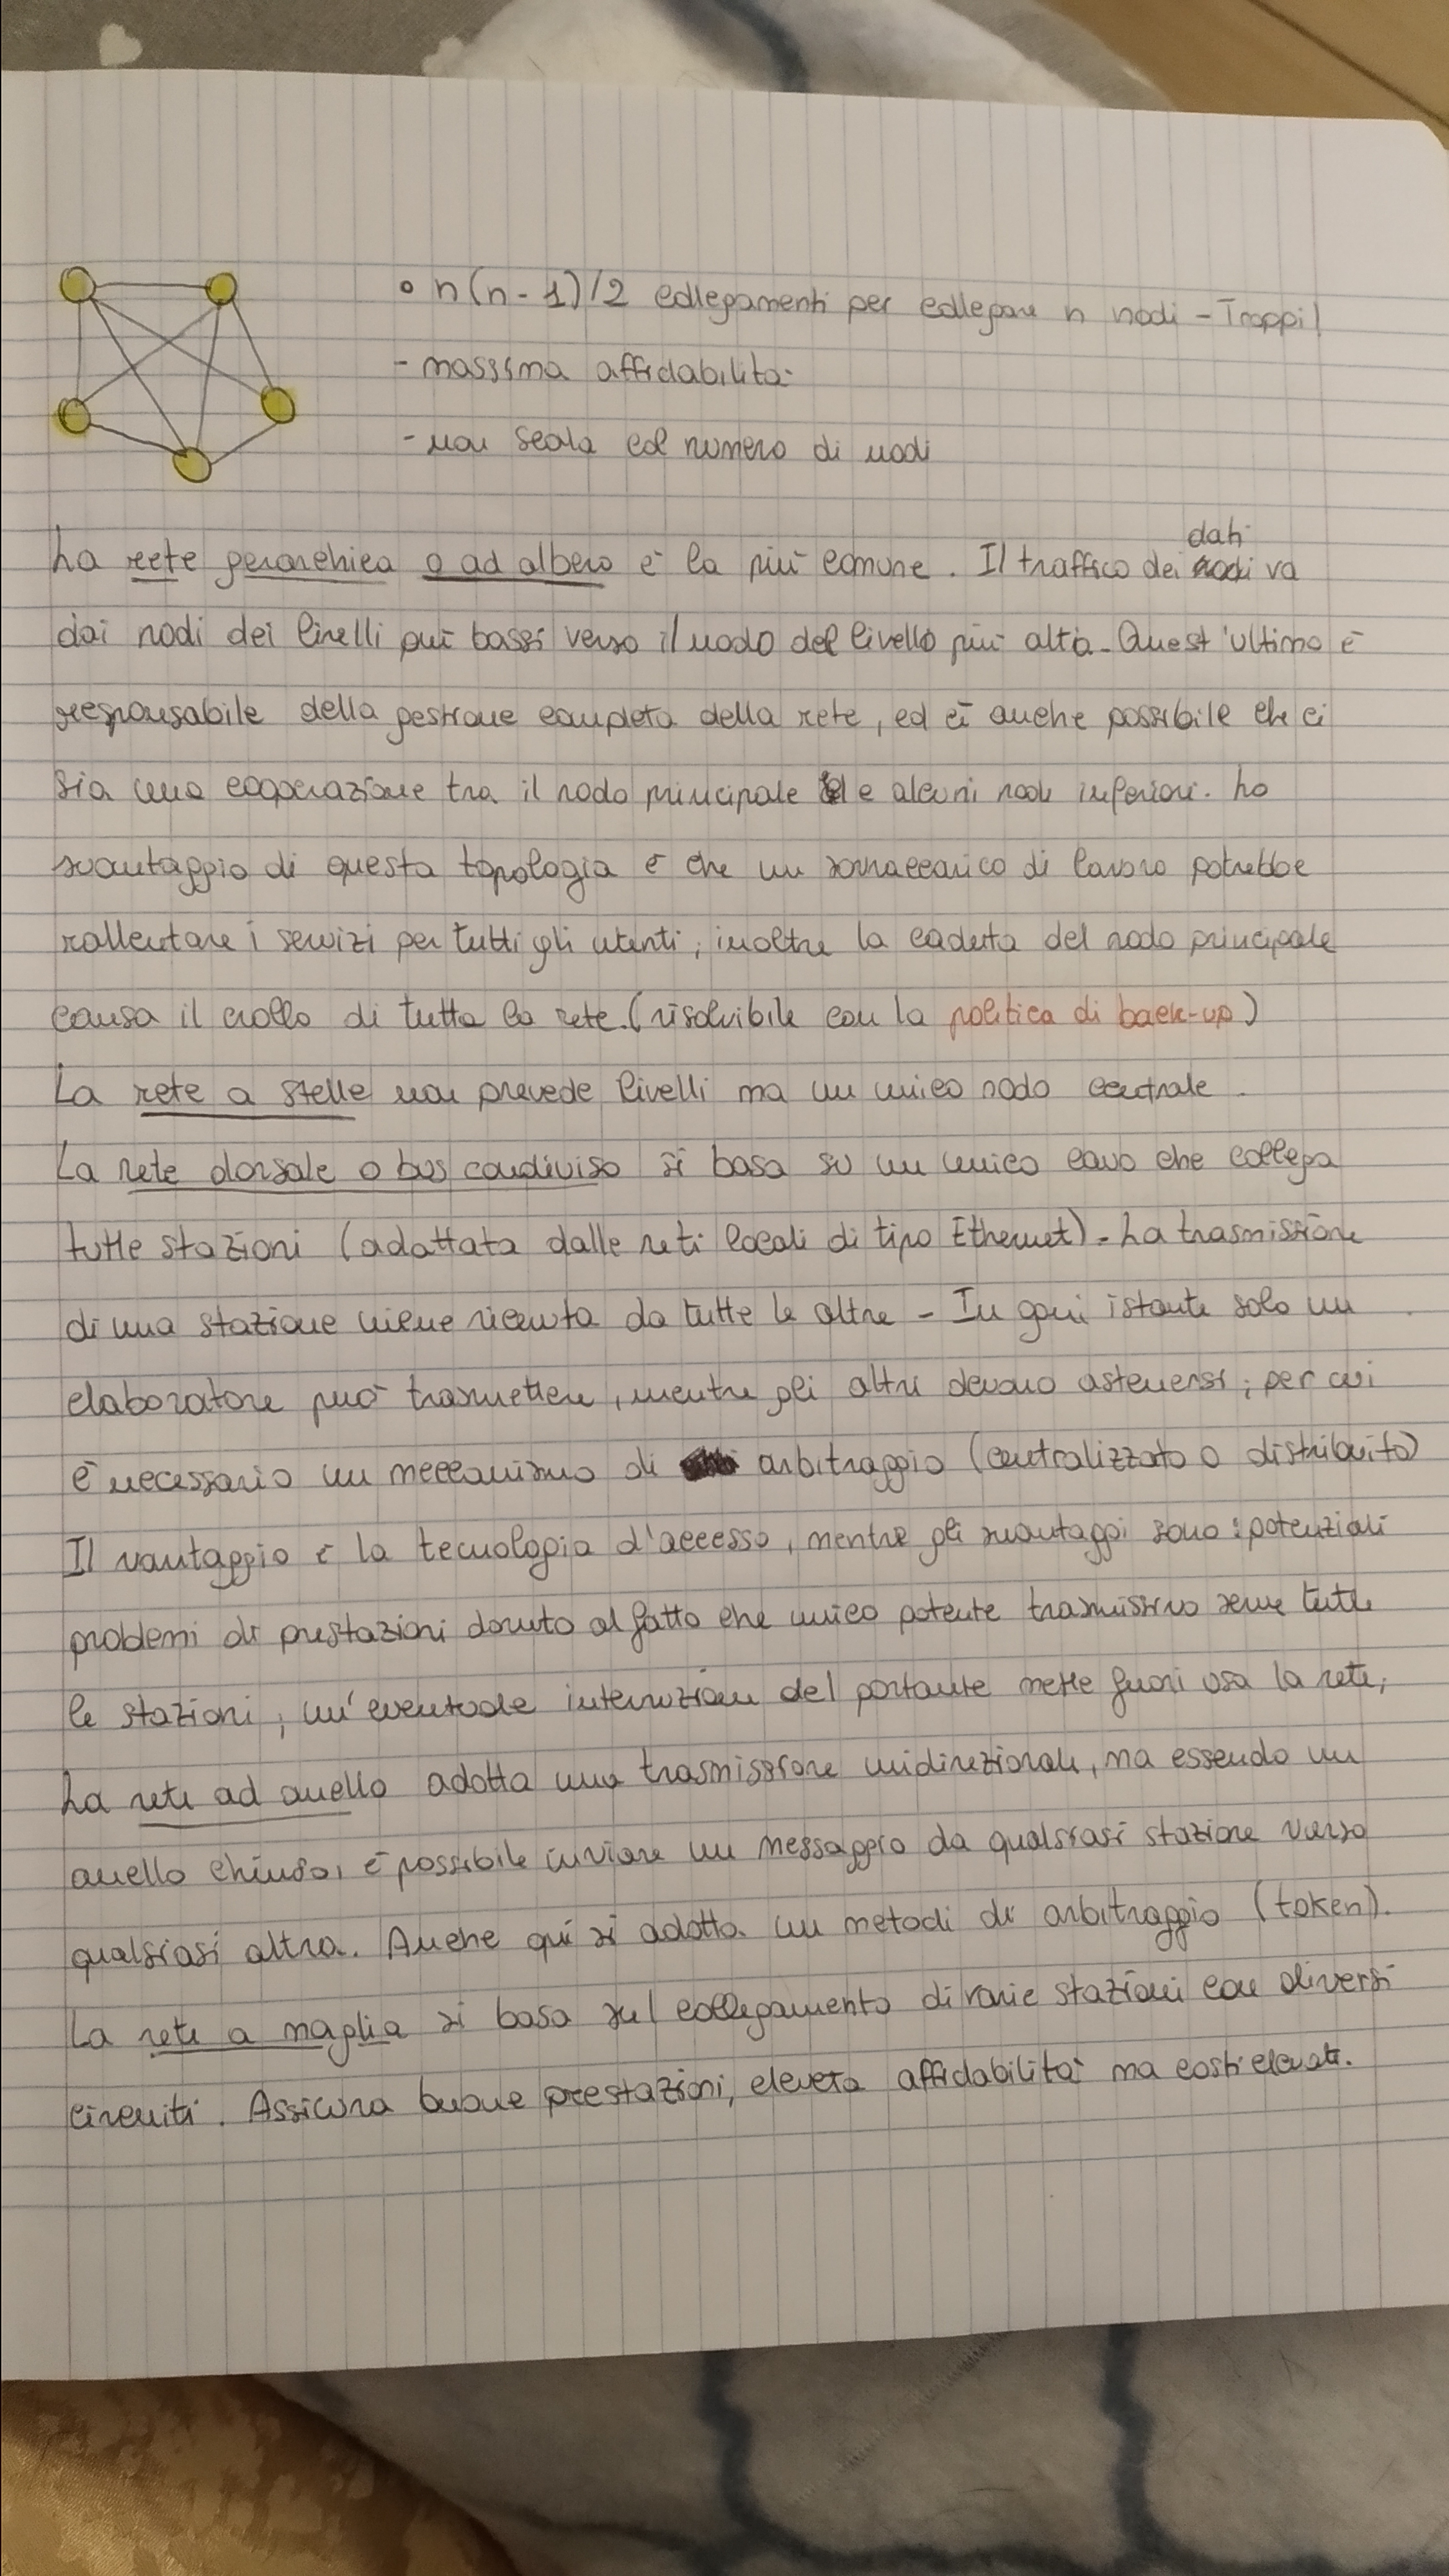 ° n(n-1)/2 collegamenti per collegare n nodi - Troppi!
- massima affidabilità
- non scala col numero di nodi
dati
La rete gerarchica o ad albero è la più comune. Il traffico dei nodi va
dai nodi dei livelli più bassi verso il nodo del livello più alto. Quest'ultimo è
responsabile della gestione completa della rete, ed è anche possibile che ci
sia una cooperazione tra il nodo principale e alcuni nodi inferiori. Lo
svantaggio di questa topologia è che un sovraccarico di lavoro potrebbe
rallentare i servizi per tutti gli utenti; inoltre la caduta del nodo principale
causa il crollo di tutta la rete. (risolvibile con la politica di back-up)
La rete a stelle non prevede livelli ma un unico nodo centrale.
La rete dorsale o bus condiviso si basa su un unico cavo che collega
tutte stazioni (adottata dalle reti locali di tipo Ethernet). La trasmissione
di una stazione viene ricevuta da tutte le altre - In ogni istante solo un
elaboratore può trasmettere, mentre gli altri devono astenersi; per cui
è necessario un meccanismo di arbitraggio (centralizzato o distribuito)
Il vantaggio è la tecnologia d'accesso, mentre gli svantaggi sono: potenziali
problemi di prestazioni dovuto al fatto che unico potente trasmissivo serve tutte
le stazioni; un'eventuale interruzione del portante mette fuori uso la rete;
La rete ad anello adotta una trasmissione unidirezionale, ma essendo un
anello chiuso, è possibile inviare un messaggio da qualsiasi stazione verso
qualsiasi altra. Anche qui si adotta un metodi di arbitraggio (token).
La rete a maglia si basa sul collegamento di varie stazioni con diversi
circuiti. Assicura buone prestazioni, elevata affidabilità ma costi elevati.